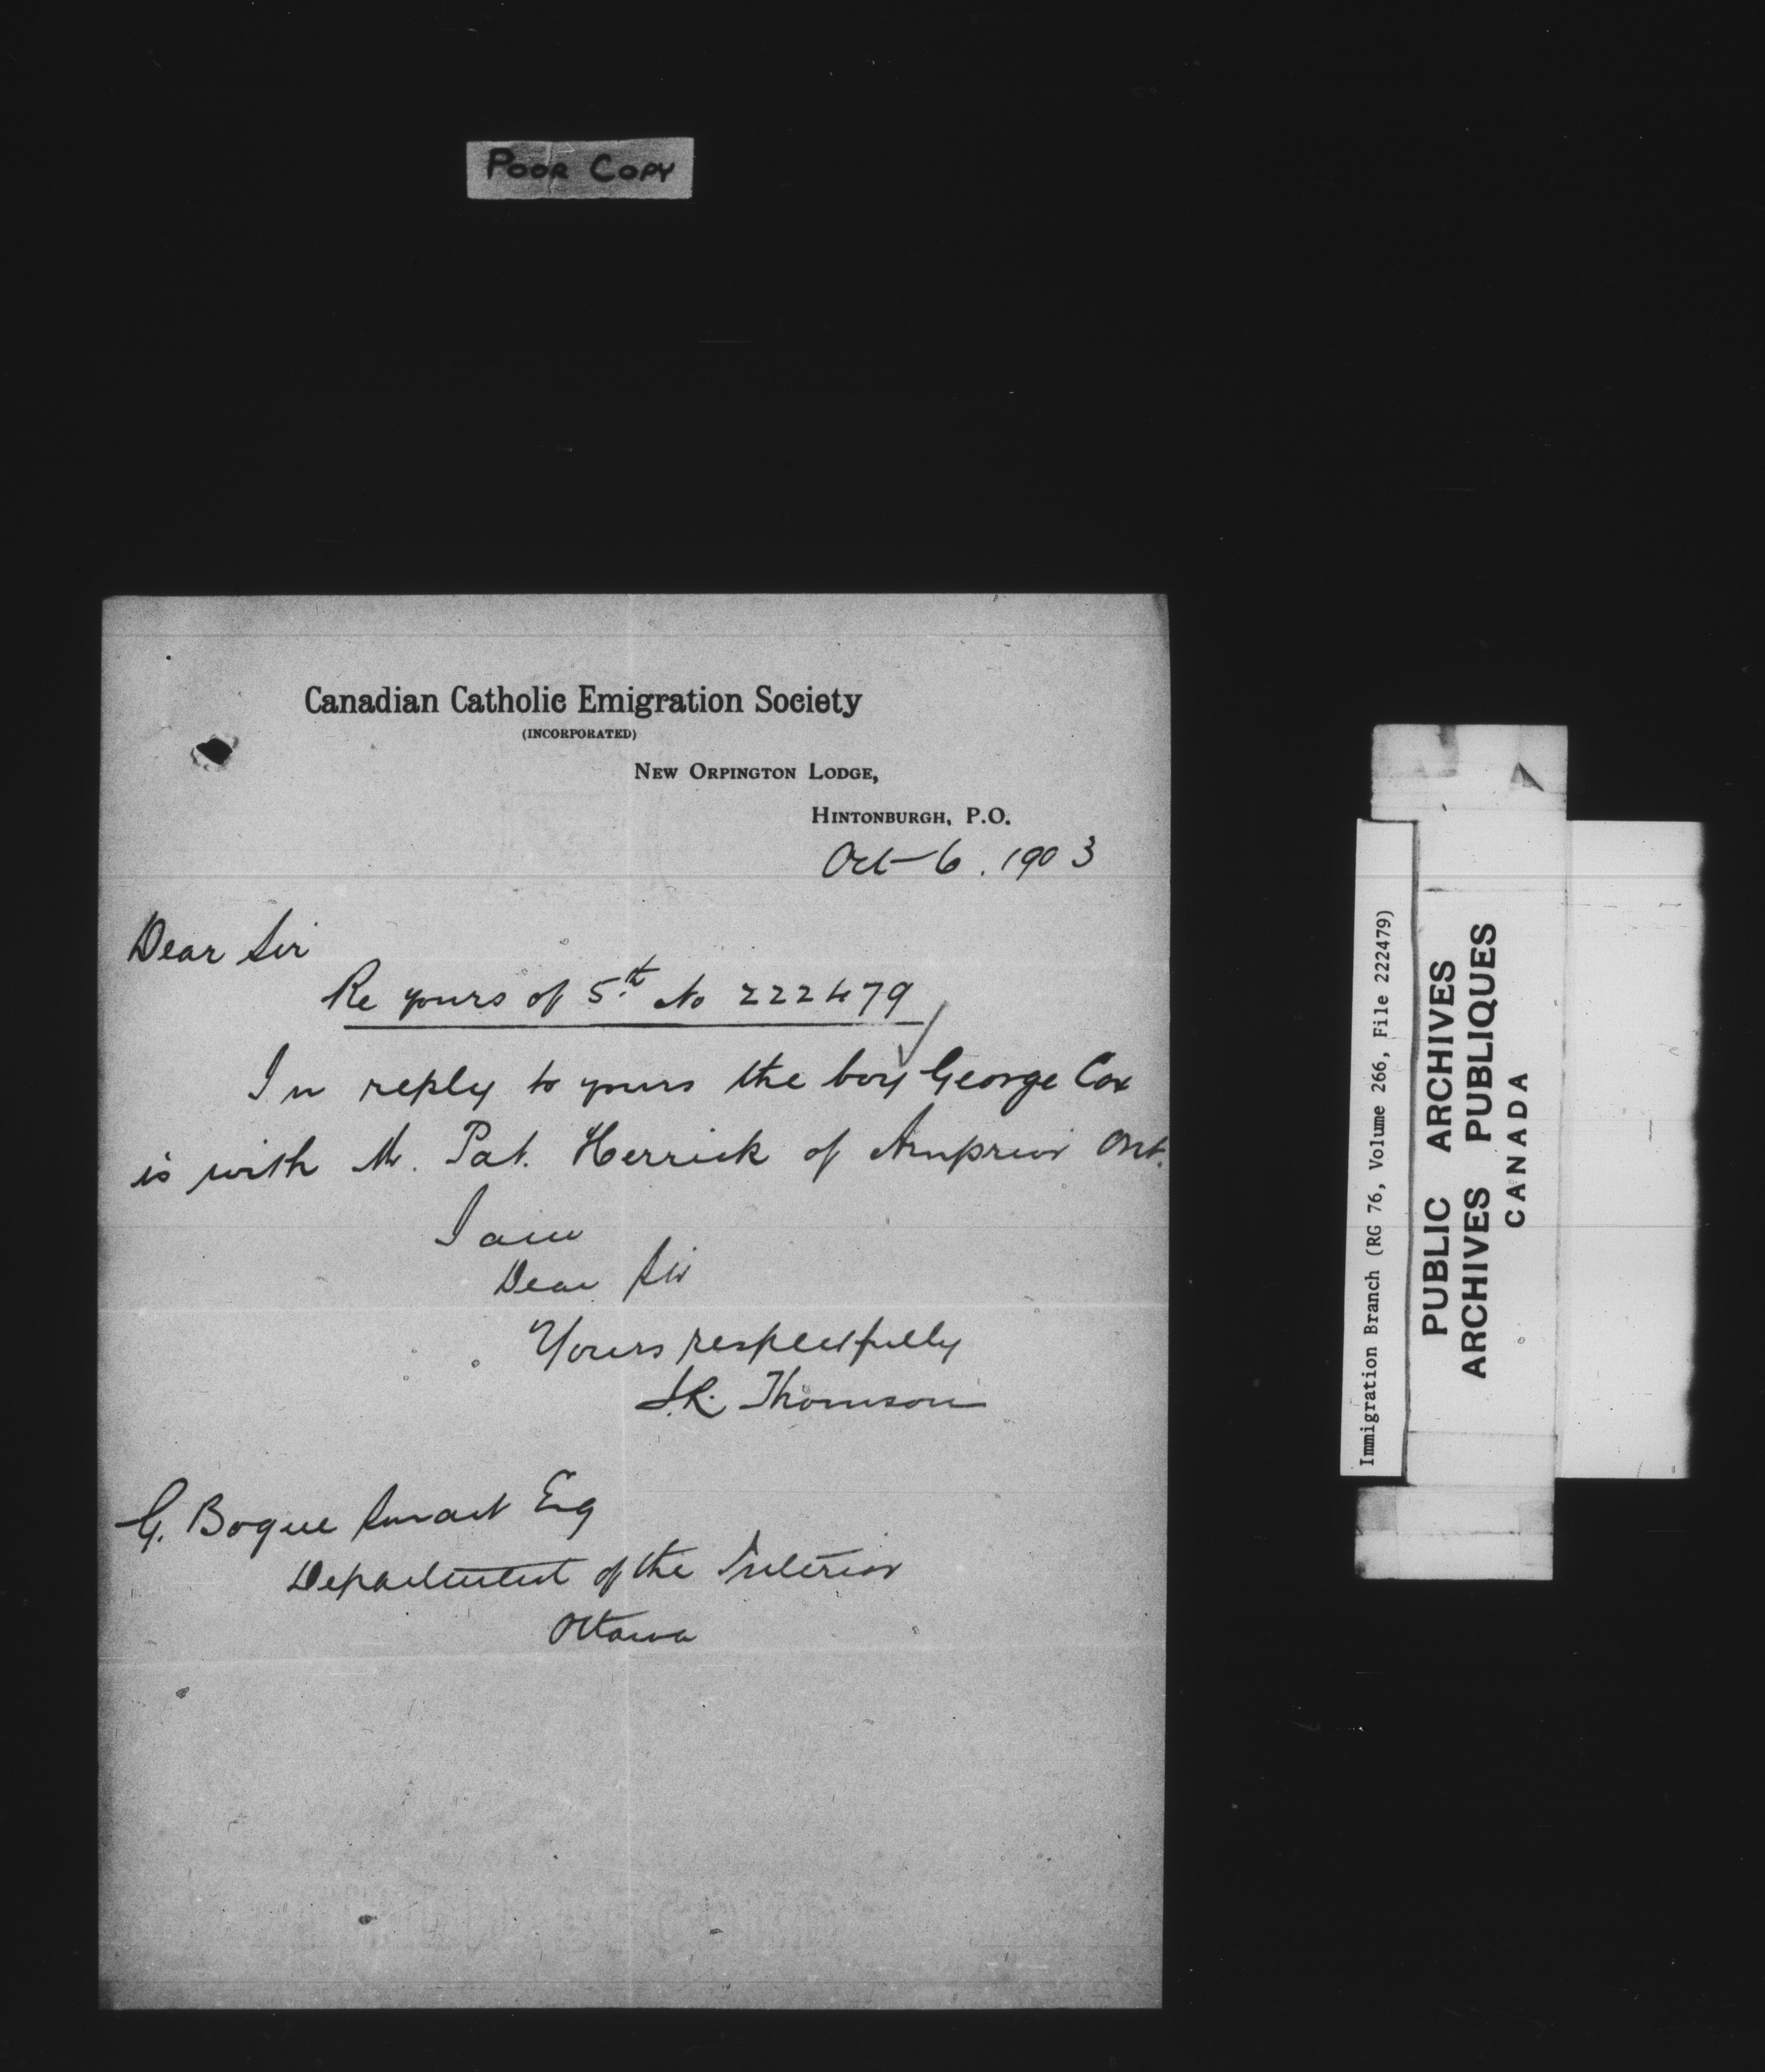 POOR COPY
Canadian Catholic Emigration Society
(INCORPORATED)
NEW ORPINGTON LODGE,
HINTONBURGH, P.O.
Oct 6. 1903
Dear Sir
Re yours of 5th No 222479
In reply to yours the boy George Cox
is with Mr. Pat. Herrick of Arnprior Ont.
I am
Dear Sir
Yours respectfully
J.R. Thomson
G. Bogue Smart Esq
Department of the Interior
Ottawa
Immigration Branch (RG 76, Volume 266, File 222479)
PUBLIC ARCHIVES
ARCHIVES PUBLIQUES
CANADA